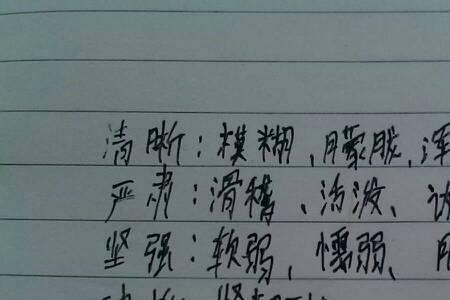 清晰：模糊、朦胧、浑
严肃：滑稽、活泼、
坚强：软弱、懦弱、